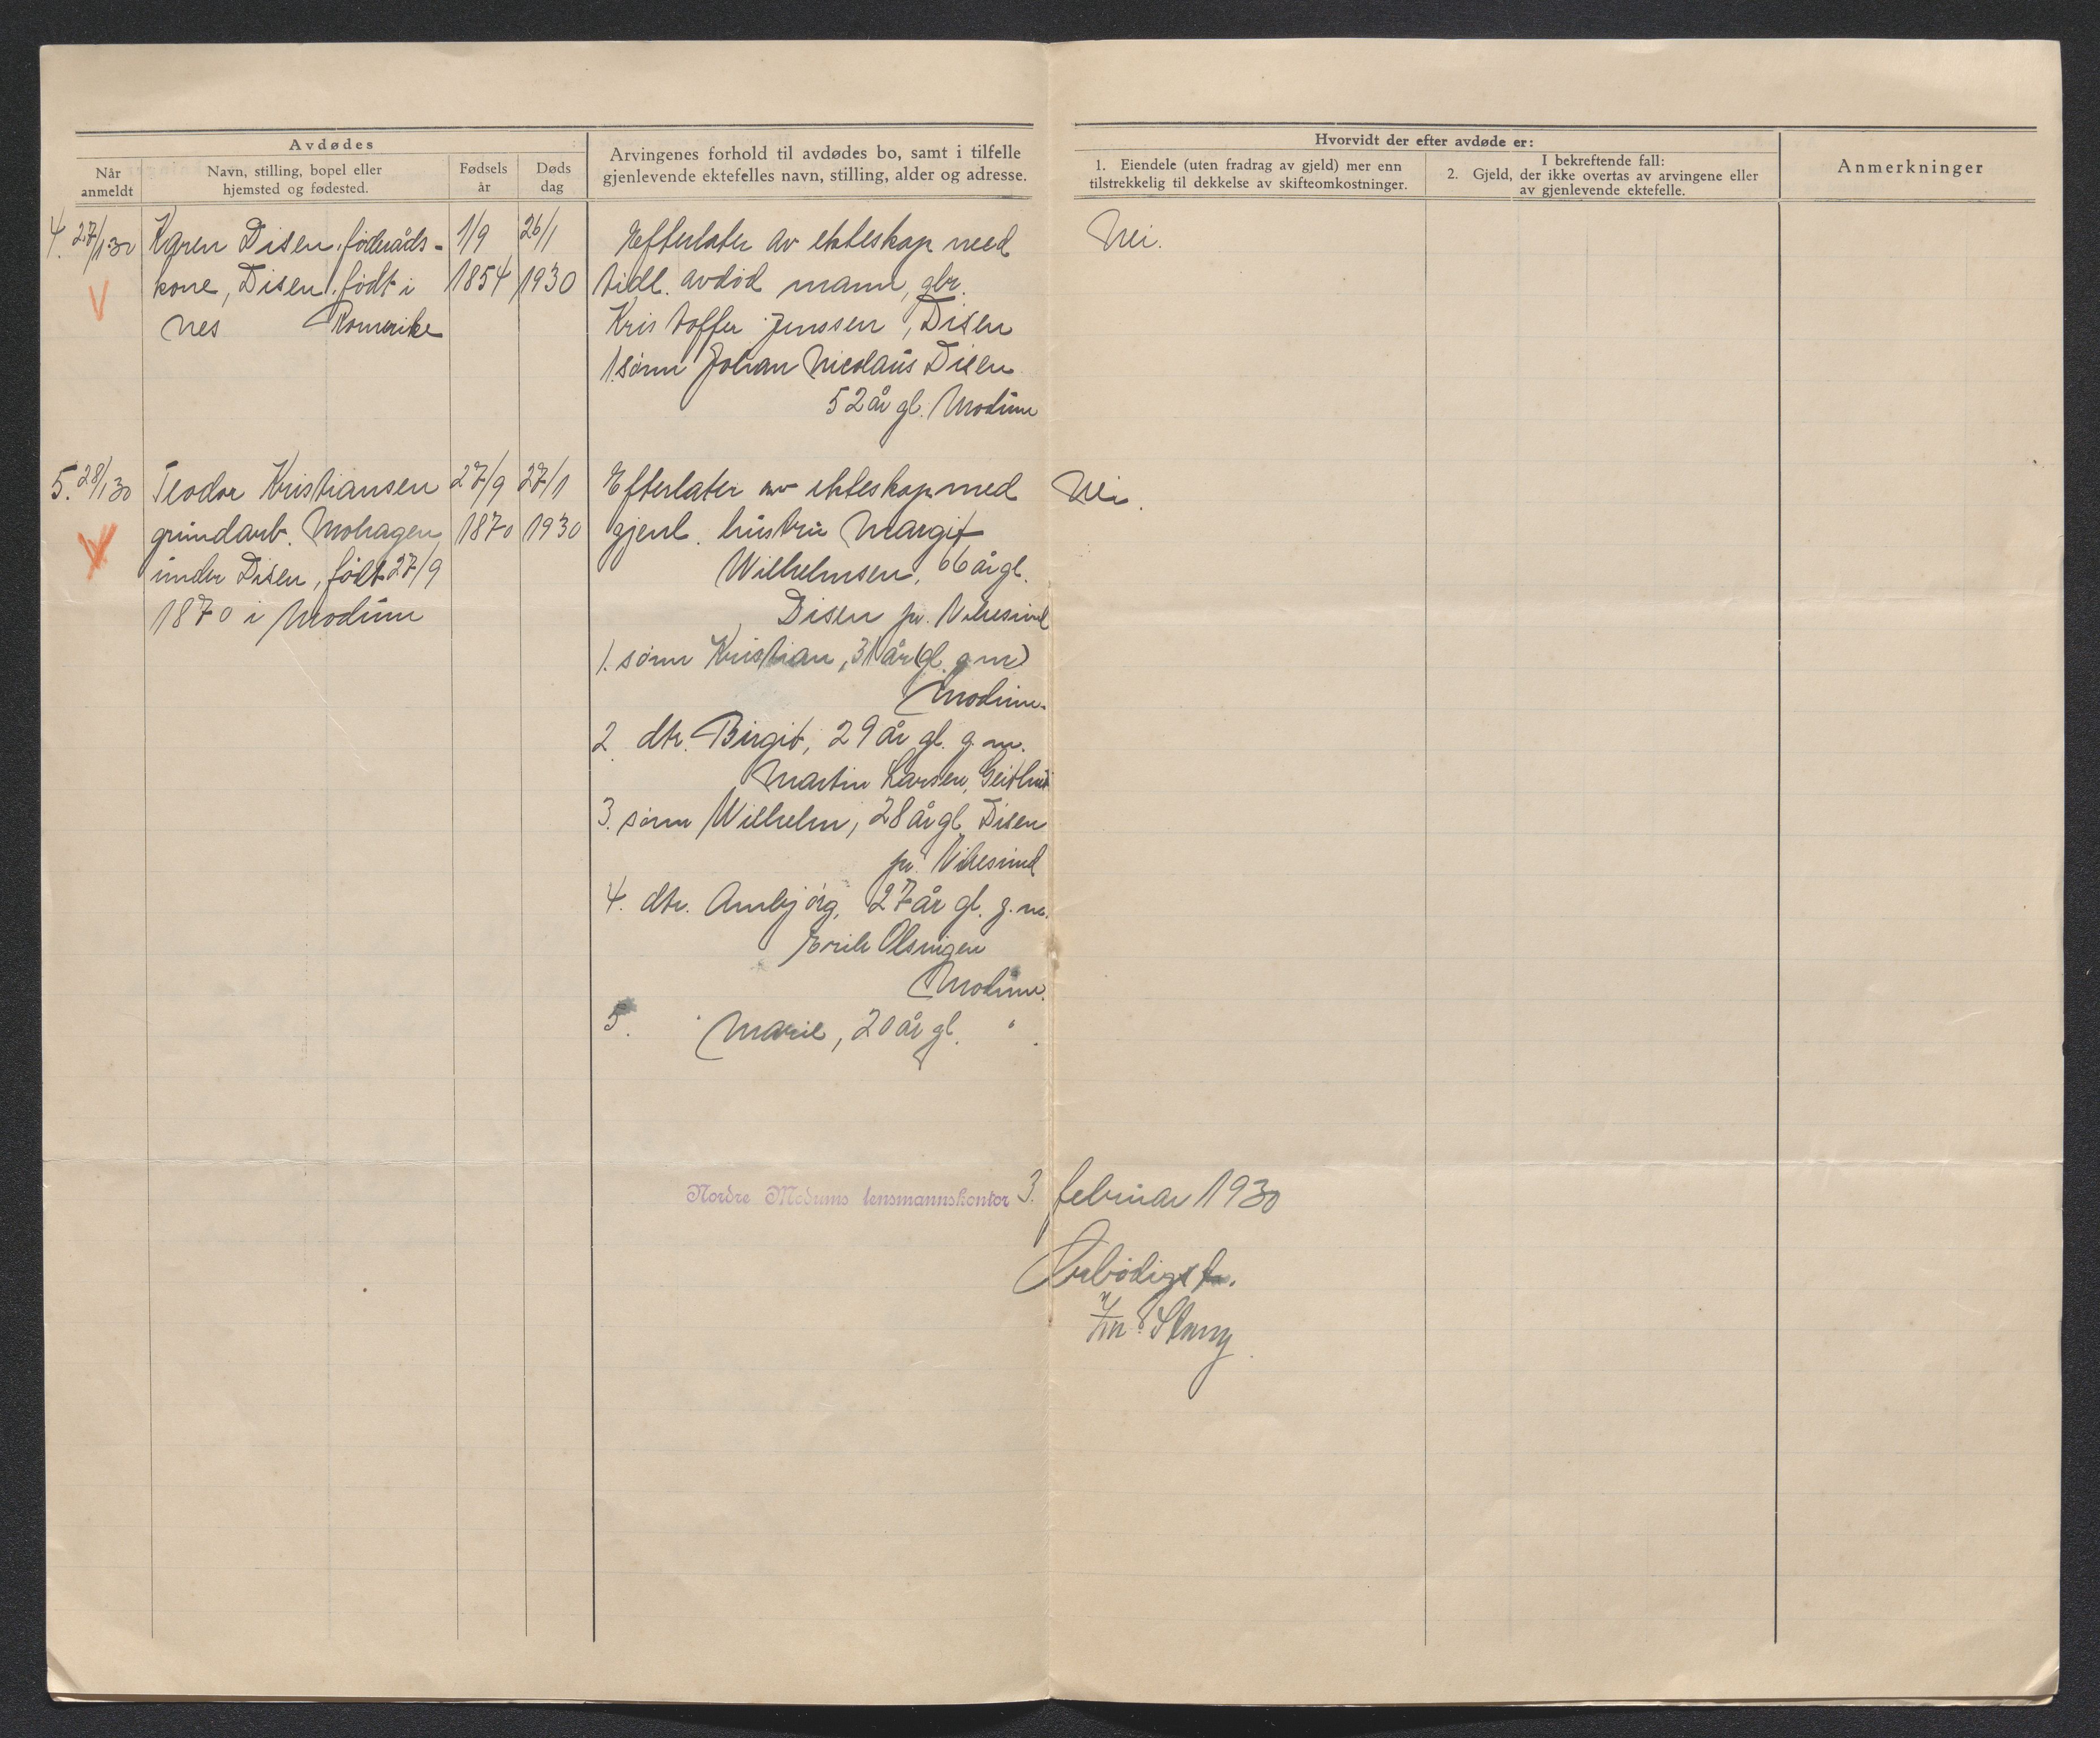 Avdødes
Når anmeldt
Navn, stilling, bopel eller hjemsted og fødested.
Fødsels år
Døds dag
Arvingenes forhold til avdødes bo, samt i tilfelle
gjenlevende ektefelles navn, stilling, alder og adresse.
Hvorvidt der efter avdøde er:
1. Eiendele (uten fradrag av gjeld) mer enn
tilstrekkelig til dekkelse av skifteomkostninger.
I bekreftende fall:
2. Gjeld, der ikke overtas av arvingene eller
av gjenlevende ektefelle.
Anmerkninger
4. 27/1 30 Karen Disen, føderåds- 1/9 26/1
kone, Disen, født i 1854 1930
Nes Romerike
Efterlater av ekteskap med
tidl. avdød mann, gbr.
Kristoffer Jenssen, Disen
1. sønn Johan Nicolaus Disen
52 år gl. Modum
Nei.
5. 28/1 30 Teodor Kristiansen 27/9 27/1
grundarb. Mohagen 1870 1930
under Disen, født 27/9
1870 i Modum
Efterlater av ekteskap med
gjenl. hustru Margit
Wilhelmsen, 66 år gl.
Disen pr. Vikesund
1. sønn Kristian, 31 år gl. g.m.
Modum.
2. dtr. Birgit, 29 år gl. g.m.
Martin Larsen, Geithus
3. sønn Wilhelm, 28 år gl. Disen
pr. Vikesund
4. dtr. Annbjørg, 27 år gl. g.m.
Erik
Modum.
5. " Marie, 20 år gl. " .
Nei.
Nordre Modums lensmannskontor 3. februar 1930
Ærbødigst.